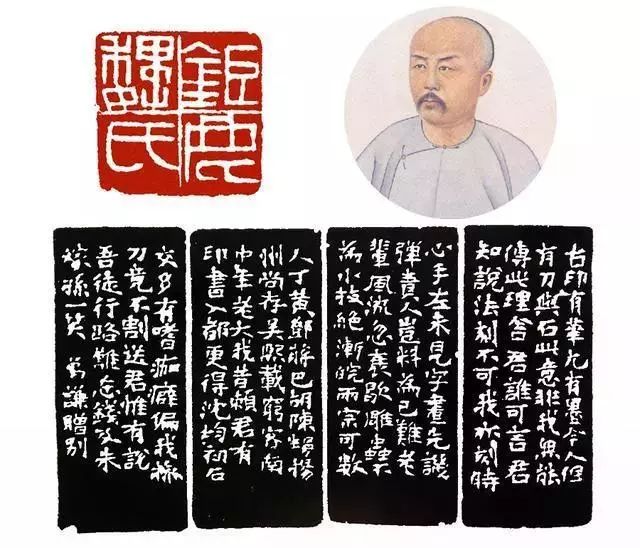 鉅鹿
魏氏
古印有筆尤有墨今人但
有刀與石此意非我無能
傳此理荅君誰可言君
知說法刻不可我亦刻時
心手左未見字畫先譏
彈責人豈料為己難老
輩風流忽衰歇雕蟲不
為小技絕浙皖兩宗可數
人丁黃鄧蔣巴胡陳揚
州尚存吳熙載窮客南
中年老大我昔賴君有
印書入都更得沈均初石
交多有嗜痂癖偏我操
刀竟不割送君惟有說
吾徒行路難念錢及朱
稼孫一笑 謙贈別